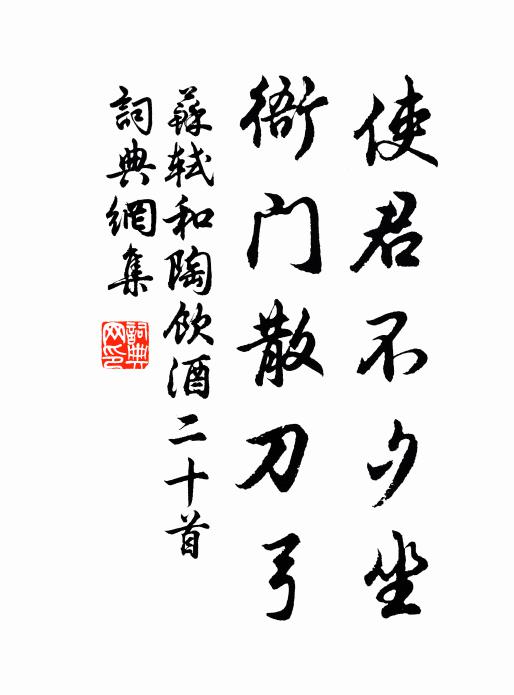 使君不夕坐
衙門散刀弓
蘇軾和陶飲酒二十首
詞典網集
詞典网印